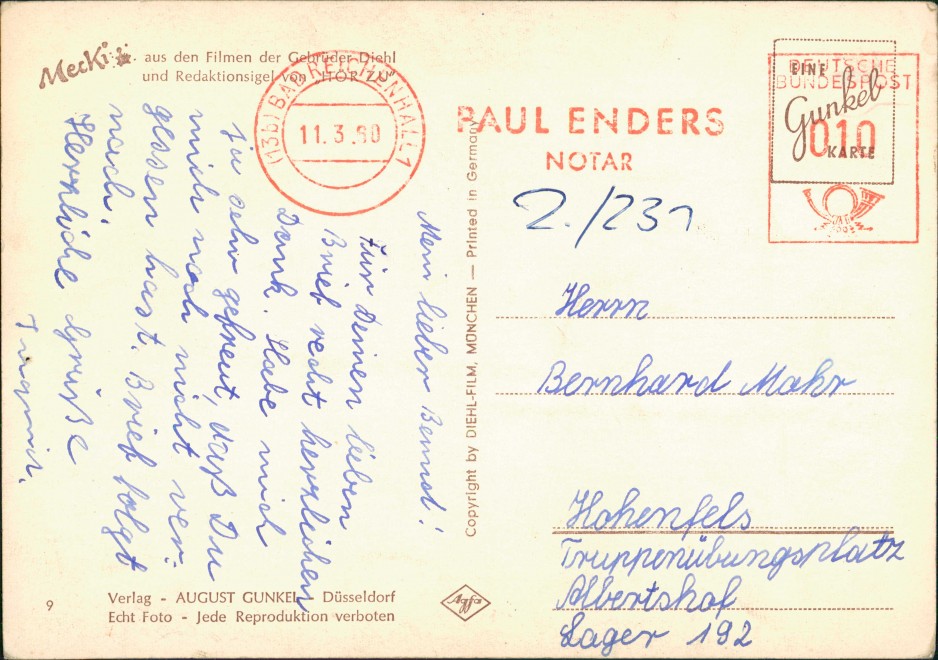 Mecki aus den Filmen der Gebrüder Diehl
und Redaktionsigel von "HÖR ZU"
(13b) BAD REICHENHALL 1
11.3.60
PAUL ENDERS
NOTAR
DEUTSCHE
BUNDESPOST
010
EINE
Gunkel
KARTE
2./231
Mein lieber Bernd!
Für Deinen lieben
Brief recht herzlichen
Dank. Habe mich
ja sehr gefreut, daß Du
mich noch nicht ver-
gessen hast. Brief folgt
nach.
Herzliche Grüße
Copyright by DIEHL-FILM, MÜNCHEN — Printed in Germany
Herrn
Bernhard Mohr
Hohenfels
Truppenübungsplatz
Albertshof
Lager 192
9
Verlag - AUGUST GUNKEL - Düsseldorf
Echt Foto - Jede Reproduktion verboten
Agfa